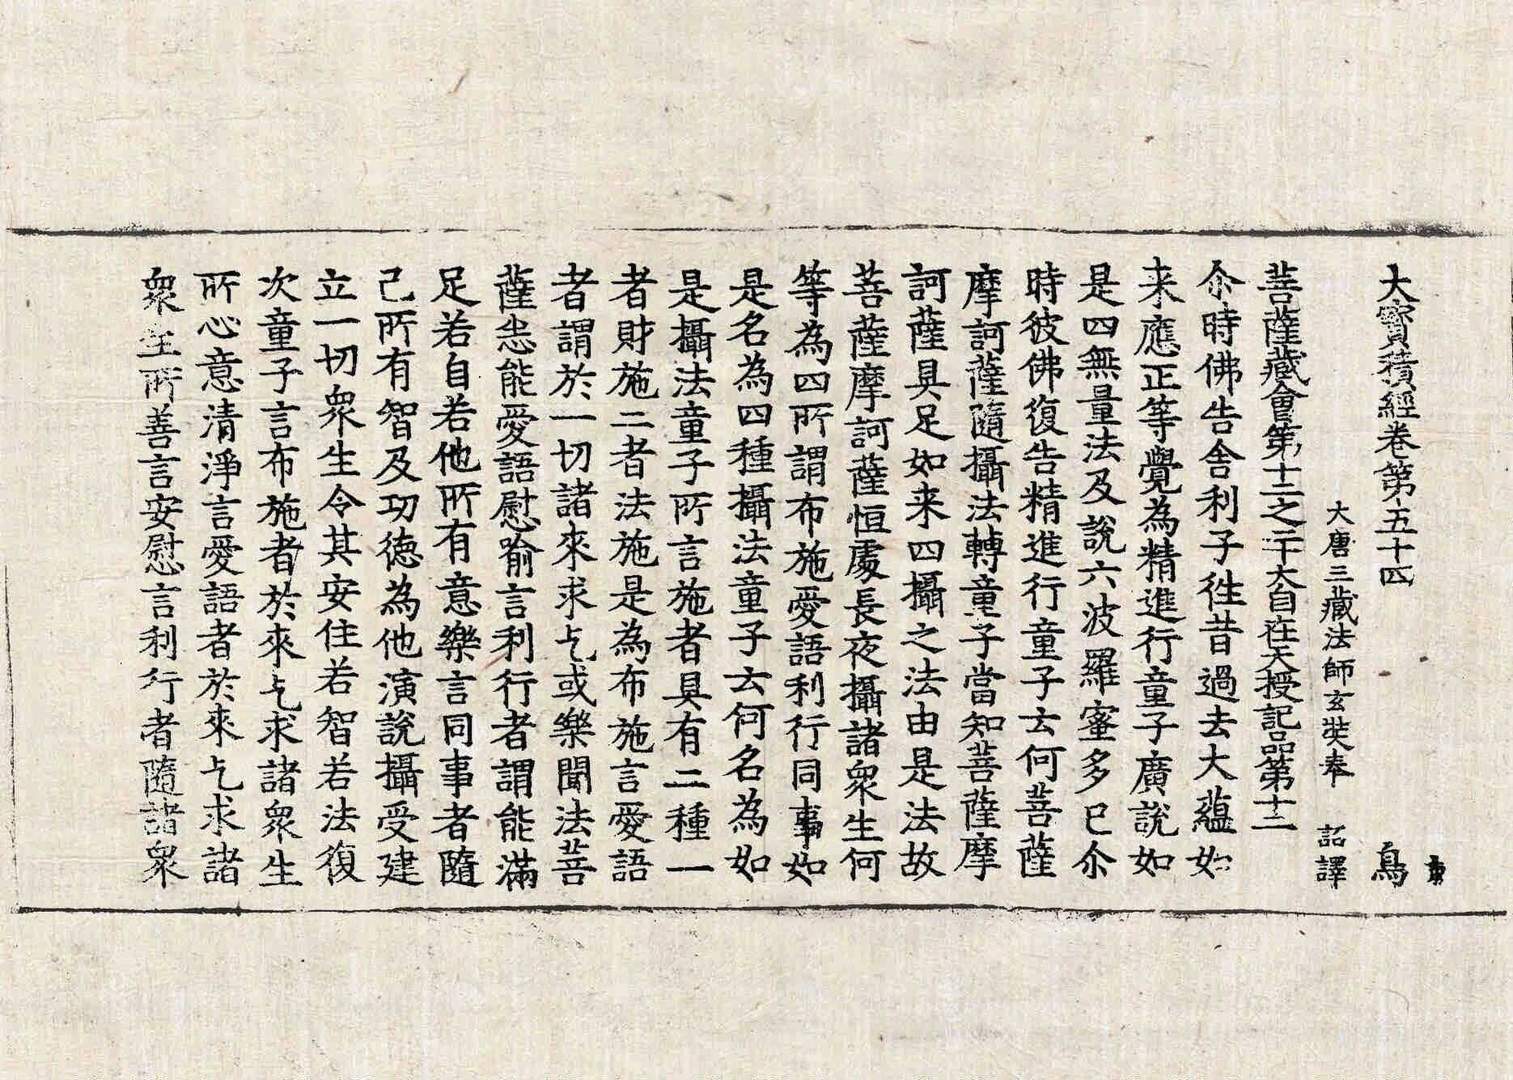 大寳積經卷第五十四 鳥
大唐三藏法師玄奘奉 詔譯
菩薩藏會第十二之二十大自在天授記品第十二
尒時佛告舍利子徃昔過去大蘊如
来應正等覺為精進行童子廣說如
是四無量法及說六波羅蜜多已尒
時彼佛復告精進行童子云何菩薩
摩訶薩隨攝法轉童子當知菩薩摩
訶薩具足如来四攝之法由是法故
菩薩摩訶薩恒處長夜攝諸衆生何
等為四所謂布施愛語利行同事如
是名為四種攝法童子云何名為如
是攝法童子所言施者具有二種一
者財施二者法施是為布施言愛語
者謂於一切諸來求乞或樂聞法菩
薩悉能愛語慰喻言利行者謂能滿
足若自若他所有意樂言同事者隨
己所有智及功德為他演說攝受建
立一切衆生令其安住若智若法復
次童子言布施者於來乞求諸衆生
所心意清淨言愛語者於來乞求諸
衆生所善言安慰言利行者隨諸衆